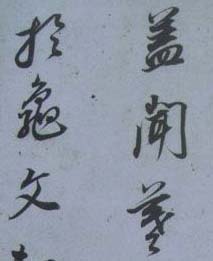 蓋聞羲
於龜文